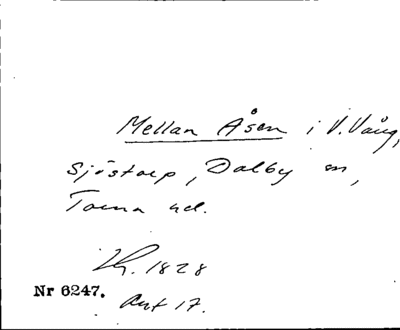 Mellan Åsen i V. Vång,
Sjöstorp, Dalby sn,
Torna hd.
Lh. 1828
Nr 6247. Akt 17.